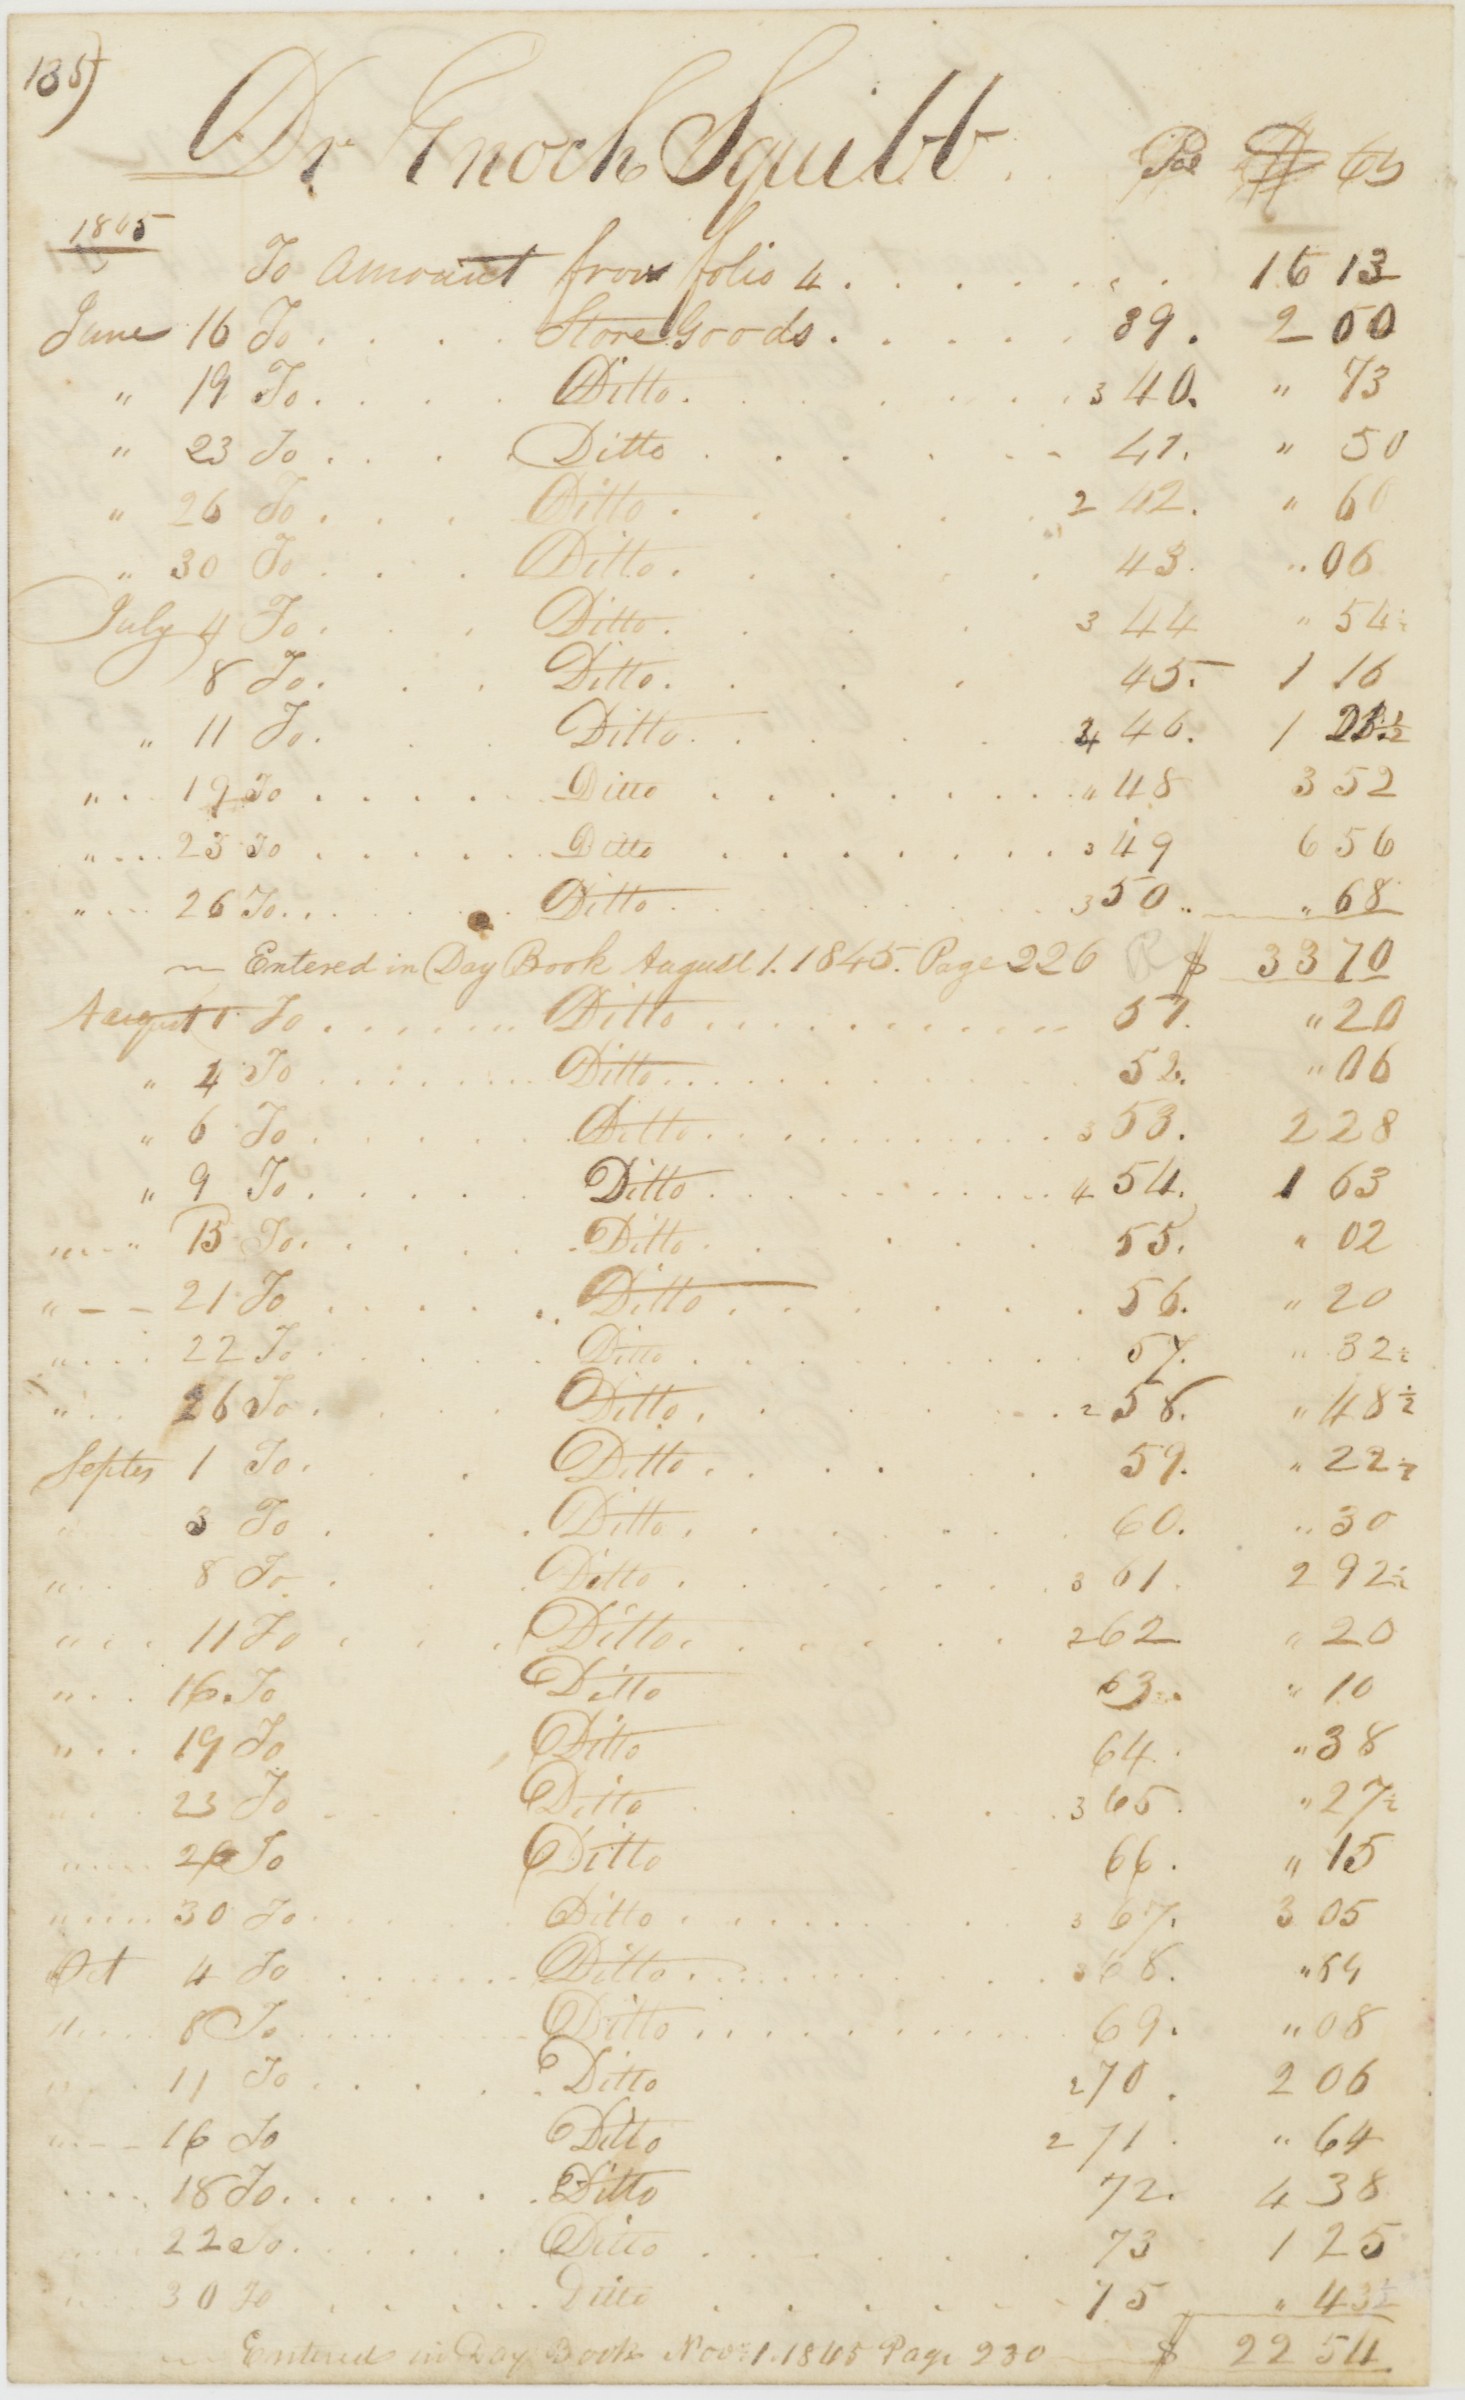 135)
Dr Enoch Squibb Pae $ Cts
1845
To Amount from folio 4 . . . . . . . 16 13
June 16 To . . . . Store Goods . . . . . 39. 2 00
" 19 To . . . . Ditto . . . . . . 3 40. " 73
" 23 To . . . . Ditto . . . . . . 41. " 50
" 26 To . . . Ditto . . . . . 2 42. " 60
" 30 To . . . Ditto . . . . . 43. " 06
July 4 To . . . Ditto . . . . 3 44 " 54½
8 To . . . Ditto . . . . 45. 1 16
" 11 To . . . Ditto . . . . . 46. 1 21½
" . 19 To . . . . . Ditto . . . . . . . . " 48 3 52
" . . . 25 To . . . . . . Ditto . . . . . . . . 3 49 6 56
" . . . 26 To . . . . . . Ditto . . . . . . . . 3 50 .. " 68
Entered in Day Book August 1. 1845. Page 226 $ 33 70
August 1 To . . . . . . . Ditto . . . . . . . . . . 51. " 20
" 4 To . . . . . . . Ditto . . . . . . . 52. " 06
" 6 To . . . . . . Ditto . . . . . . . . . . 3 53. 2 28
" 9 To . . . . . Ditto . . . . . . . . . 4 54. 1 63
" " 13 To . . . . . . Ditto . . . . . 55. " 02
" - - 21 To . . . . . . . Ditto . . . . . . . 56. " 20
" . . . 22 To . . . . . . Ditto . . . . . . . . 57. " 32½
" . . 26 To . . . . Ditto . . . . . . 2 58. " 48½
Septer 1 To . . . Ditto . . . . . 59. " 22½
" 3 To . . . Ditto . . . . . . 60. " 30
" . . 8 To . . . Ditto . . . . . . . 3 61. 2 92½
" . . . 11 To . . . . Ditto . . . . . . 2 62 " 20
" . . 16. To Ditto 63.. " 10
" . . 19 To Ditto 64. " 38
" . . . 23 To . . . Ditto . . . . 3 65. " 27½
" . . . 26 To Ditto 66. " 15
" . . . . 30 To . . . . Ditto . . . . . . . . 3 67. 3 05
Oct 4 To . . . . . . . Ditto . . . . . . . . . 68. " 64
" . . . . 8 To . . . . . . . Ditto . . . . . . . . . . 69. " 08
" . . . 11 To . . . . . . Ditto 2 70 . 2 06
" . - - 16 To Ditto 2 71 . " 64
. . . . 18 To . . . . . . . Ditto 72. 4 38
. . . . 22 To . . . . . . Ditto . . . . . . 73 1 25
. . . . 30 To . . . . . Ditto . . . . . . 75 " 43½
Entered in Day Book Novr 1. 1845 Page 230 $ 22 54